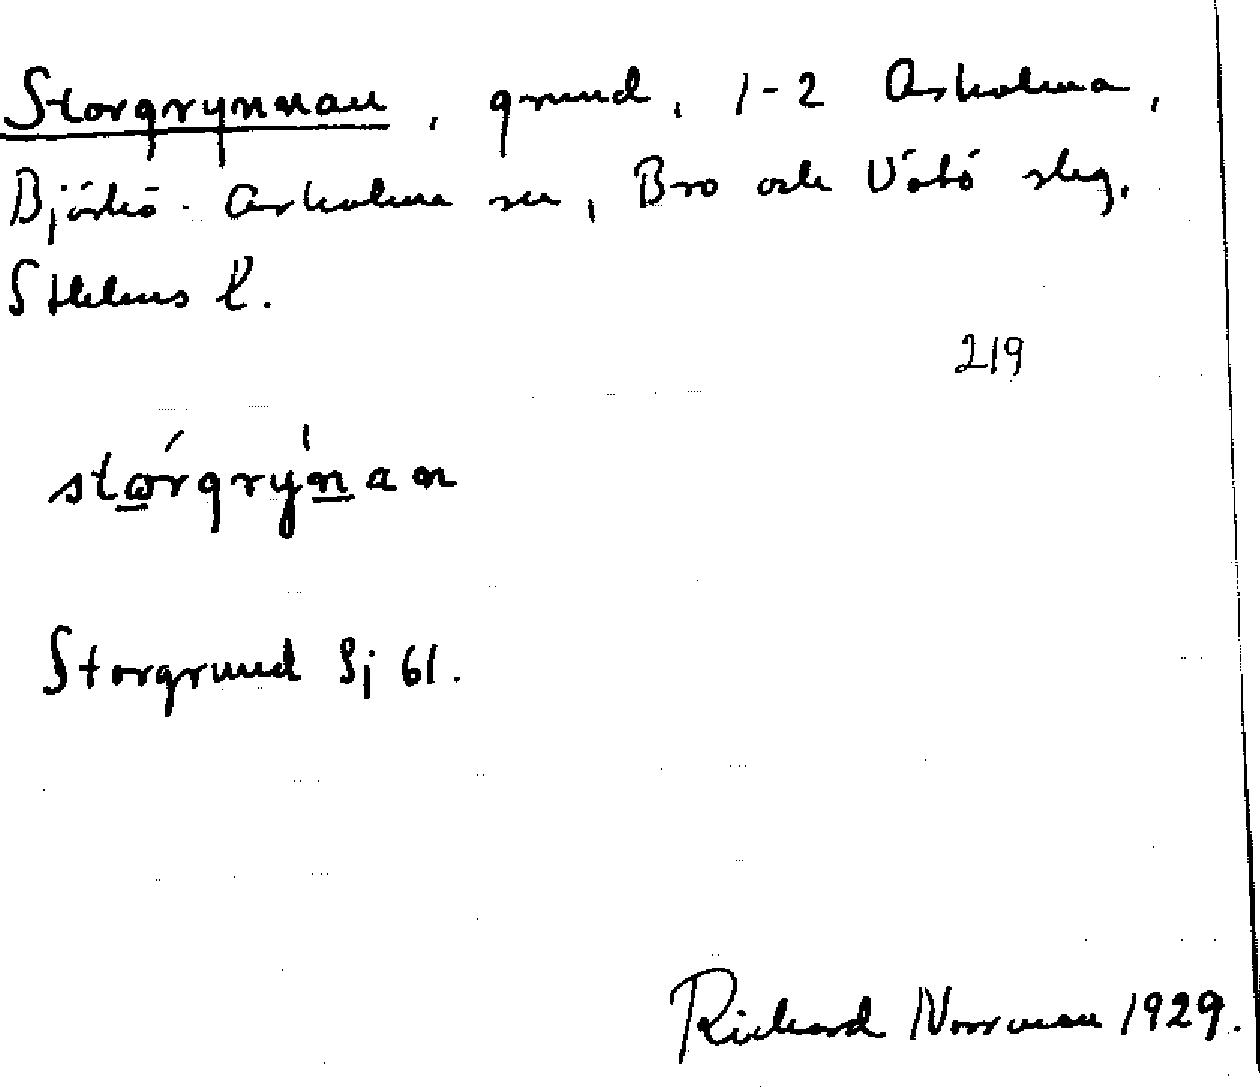 Storgrynnan, grund, 1-2 Arholma,
Björkö-Arholma sn, Bro och Vätö skg,
Sthlms l.
219
stórgrýnan
Storgrund Sj 61.
Richard Norrman 1929.